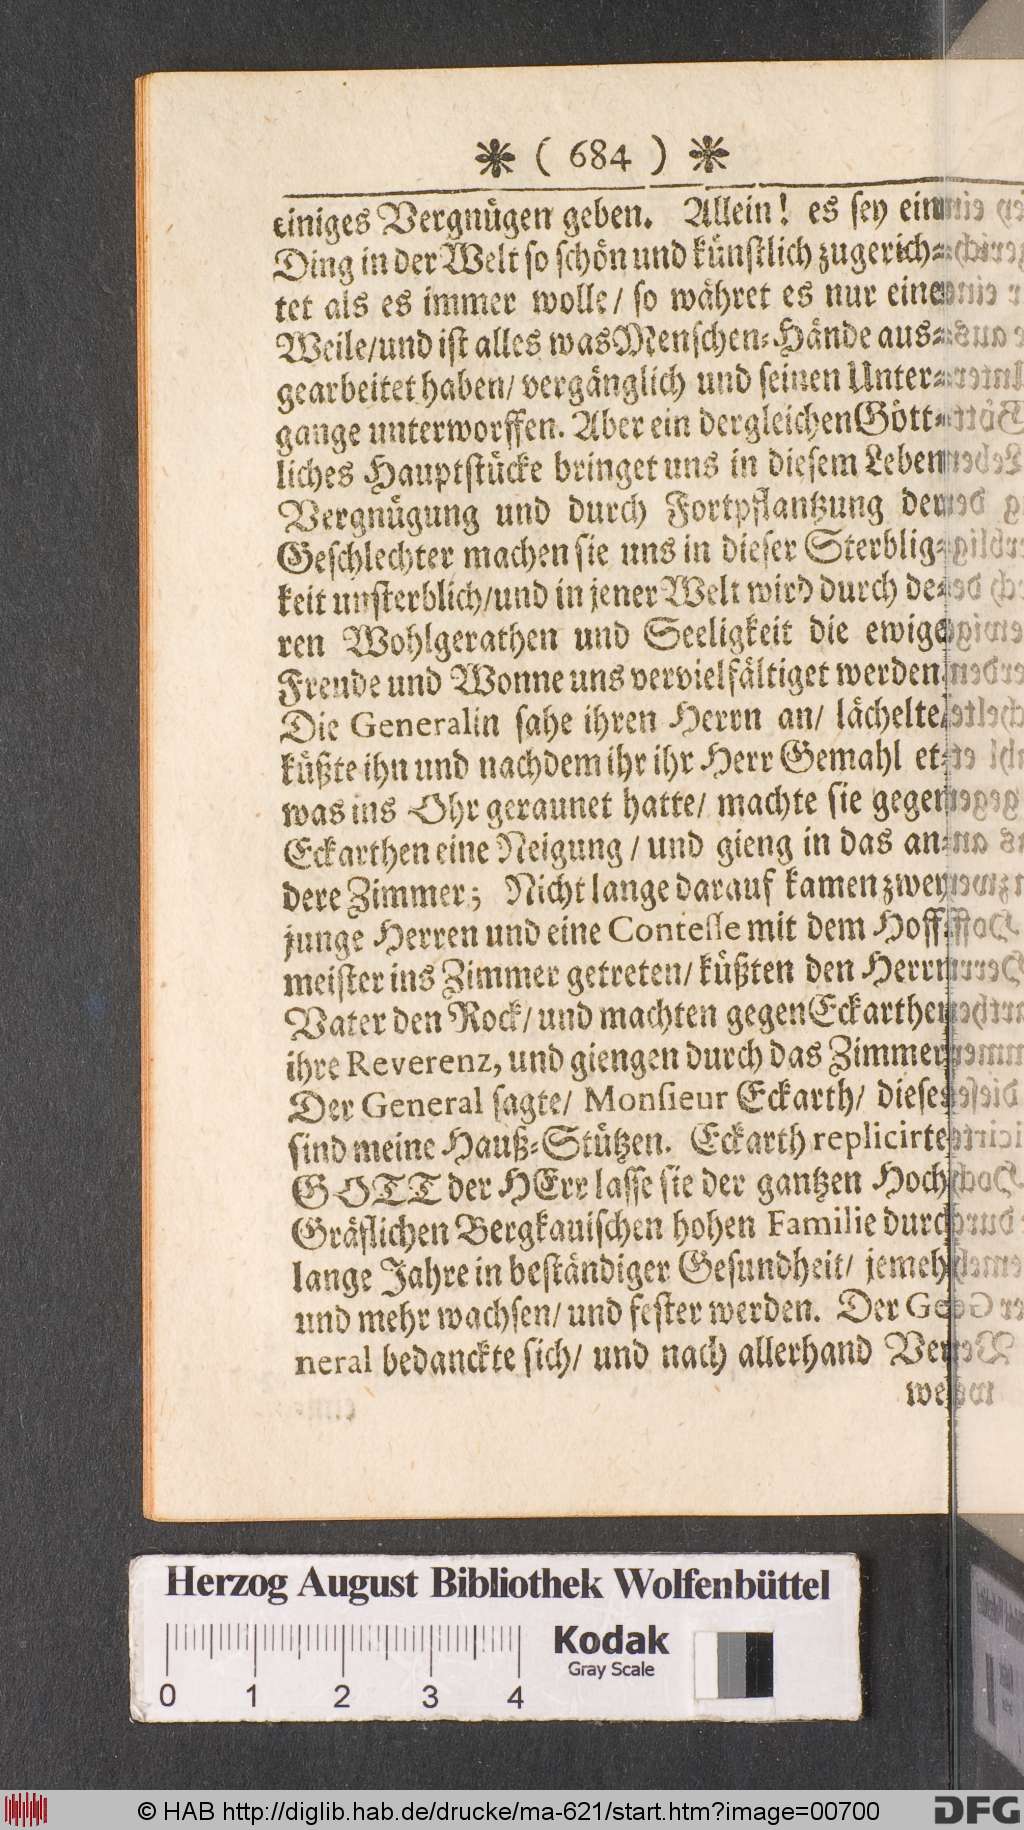 ❋ ( 684 ) ❋
einiges Vergnügen geben. Allein! es sey ein
Ding in der Welt so schön und künstlich zugerich-
tet als es immer wolle/ so währet es nur eine
Weile/und ist alles was Menschen-Hände aus-
gearbeitet haben/ vergänglich und seinen Unter-
gange unterworffen. Aber ein dergleichen Gött-
liches Hauptstücke bringet uns in diesem Leben
Vergnügung und durch Fortpflantzung der
Geschlechter machen sie uns in dieser Sterblig-
keit unsterblich/und in jener Welt wird durch de-
ren Wohlgerathen und Seeligkeit die ewige
Freude und Wonne uns vervielfältiget werden.
Die Generalin sahe ihren Herrn an/ lächelte/
küßte ihn und nachdem ihr ihr Herr Gemahl et-
was ins Ohr geraunet hatte/ machte sie gegen
Eckarthen eine Neigung / und gieng in das an-
dere Zimmer; Nicht lange darauf kamen zwey
junge Herren und eine Contesse mit dem Hoff-
meister ins Zimmer getreten/ küßten den Herrn
Vater den Rock/ und machten gegen Eckarthen
ihre Reverenz, und giengen durch das Zimmer.
Der General sagte/ Monsieur Eckarth/ diese
sind meine Hauß-Stützen. Eckarth replicirte
GOTT der HErr lasse sie der gantzen Hoch-
Gräflichen Bergkauischen hohen Familie durch
lange Jahre in beständiger Gesundheit/ jemehr
und mehr wachsen/ und fester werden. Der Ge-
neral bedanckte sich/ und nach allerhand Ver-
Herzog August Bibliothek Wolfenbüttel
Kodak
Gray Scale
0 1 2 3 4
© HAB http://diglib.hab.de/drucke/ma-621/start.htm?image=00700
DFG